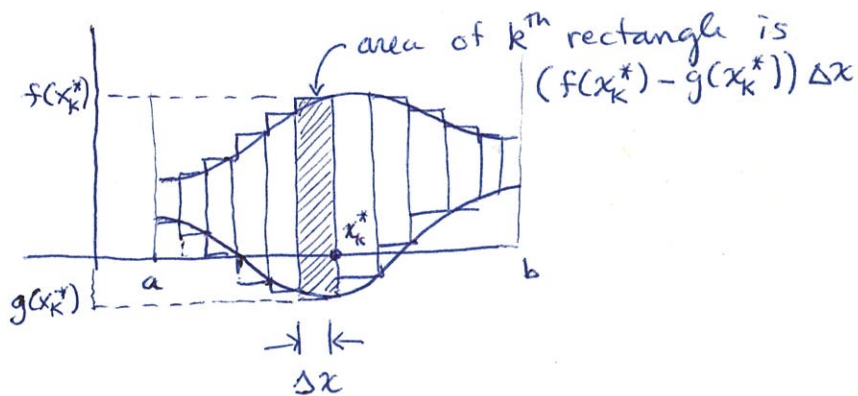 area of k^th rectangle is
(f(x_k^*) - g(x_k^*)) Δx
f(x_k^*)
x_k^*
a
b
g(x_k^*)
Δx